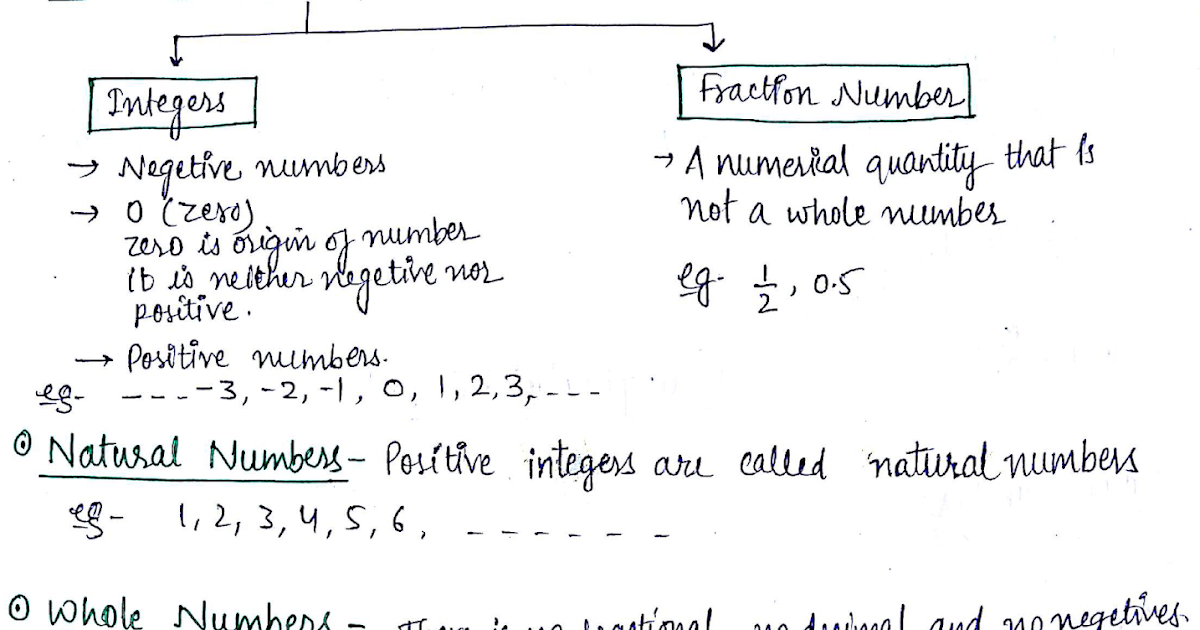 Integers
Fraction Number
→ Negetive numbers
→ 0 (zero)
zero is origin of number
it is neither negetive nor
positive.
→ Positive numbers.
eg- ----3, -2, -1, 0, 1, 2, 3, ---
→ A numerical quantity that is
not a whole number
eg- 1/2, 0.5
⊙ Natural Numbers - Positive integers are called natural numbers
eg- 1, 2, 3, 4, 5, 6, ------
⊙ Whole Numbers - There is no fractional, no decimal and no negetives.